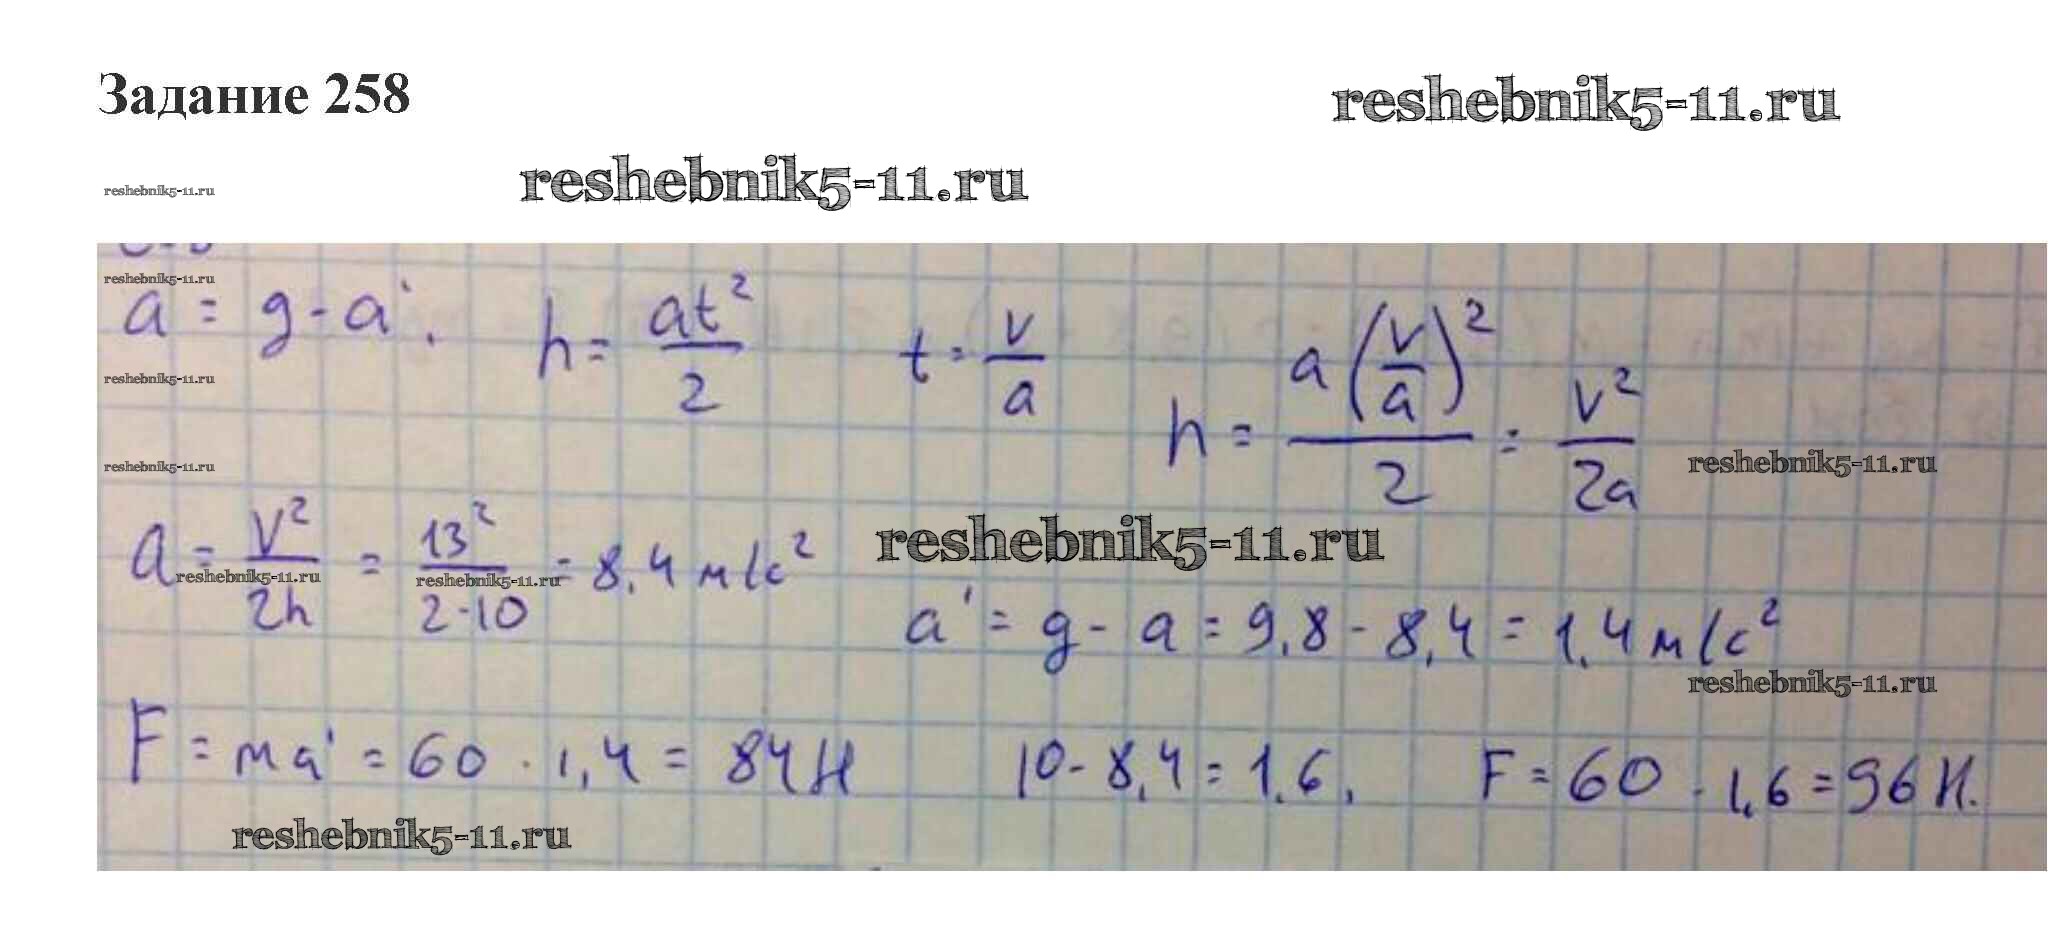 Задание 258
reshebnik5-11.ru
reshebnik5-11.ru
reshebnik5-11.ru
reshebnik5-11.ru
a = g - a'. h = at²/2 t = v/a h = a(v/a)²/2 = v²/2a
reshebnik5-11.ru
reshebnik5-11.ru
reshebnik5-11.ru
a = v²/2h = 13²/2·10 = 8,4 м/с²
reshebnik5-11.ru
reshebnik5-11.ru
reshebnik5-11.ru
a' = g - a = 9,8 - 8,4 = 1,4 м/с²
reshebnik5-11.ru
F = ma' = 60 · 1,4 = 84 Н 10 - 8,4 = 1,6, F = 60 · 1,6 = 96 Н.
reshebnik5-11.ru